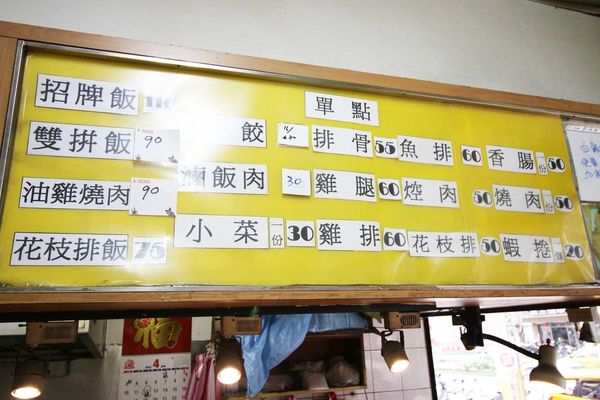 招牌飯 110
單點
雙拼飯 90
餃
排骨 55
魚排 60
香腸 一份 50
油雞燒肉 90
滷飯肉 30
雞腿 60
焢肉 50
燒肉 一份 50
花枝排飯 75
小菜 一份 30
雞排 60
花枝排 50
蝦捲 一條 20
福
4